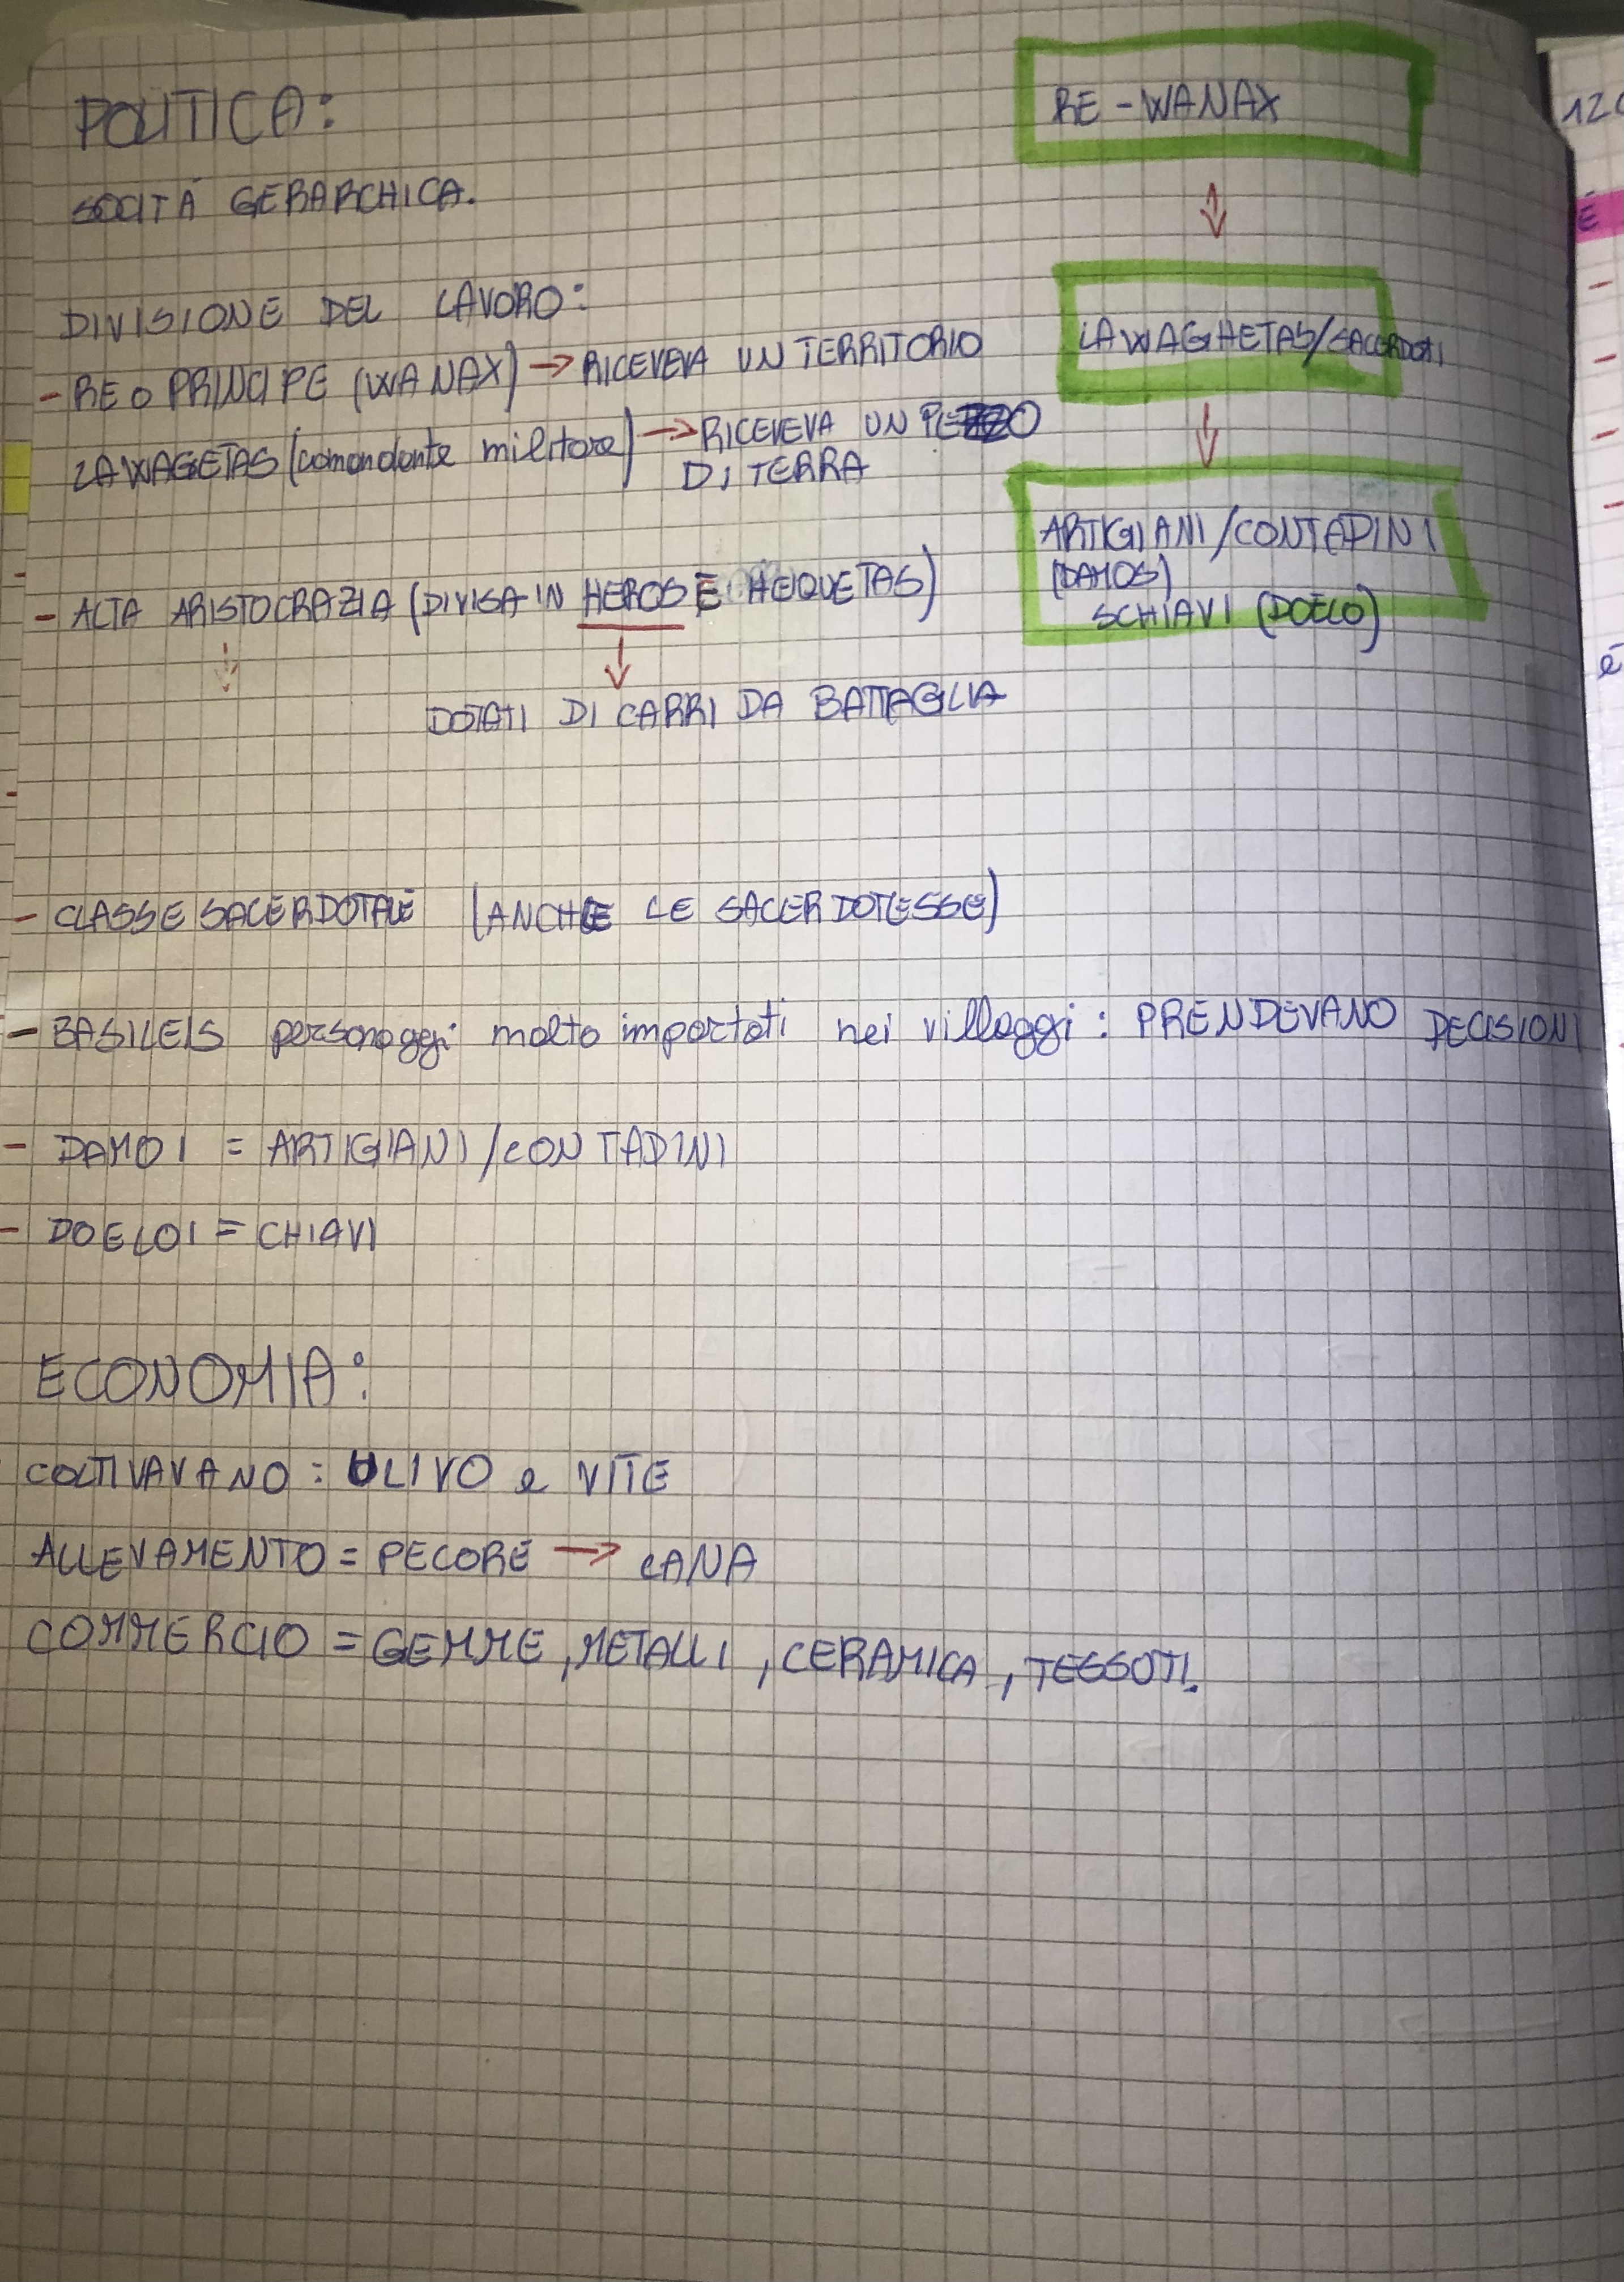 POLITICA:
SOCITÀ GERARCHICA.
DIVISIONE DEL LAVORO:
- RE O PRINCIPE (WANAX) → RICEVEVA UN TERRITORIO
LAWAGETAS (comandante militare) → RICEVEVA UN PEZZO
DI TERRA
- ALTA ARISTOCRAZIA (DIVISA IN HEROS E HEQUETAS)
DOTATI DI CARRI DA BATTAGLIA
RE - WANAX
LAWAGHETAS/SACERDOTI
ARTIGIANI/CONTADINI
(DAMOS)
SCHIAVI (DOELO)
- CLASSE SACERDOTALE (ANCHE LE SACERDOTESSE)
- BASILEIS personaggi molto importati nei villaggi: PRENDEVANO DECISIONI
- DAMOI = ARTIGIANI/CONTADINI
- DOELOI = CHIAVI
ECONOMIA:
COLTIVAVANO: ULIVO e VITE
ALLEVAMENTO = PECORE → LANA
COMMERCIO = GEMME, METALLI, CERAMICA, TESSOTI.
120
È
è